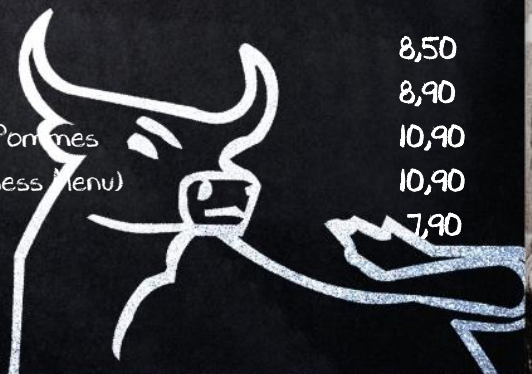 8,50
8,90
Pommes 10,90
Menu) 10,90
7,90